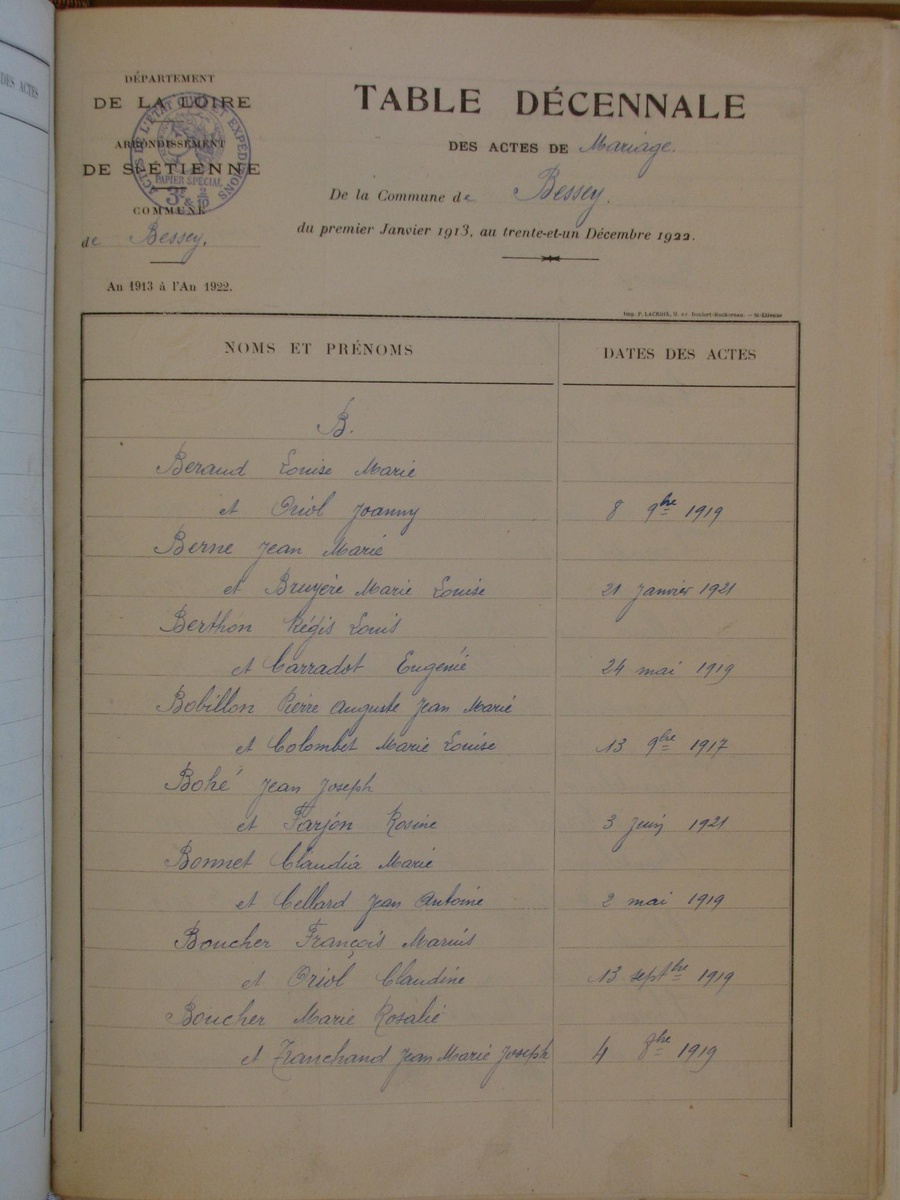 DES ACTES
DÉPARTEMENT
DE LA LOIRE
ARRONDISSEMENT
DE St-ÉTIENNE
COMMUNE
de Bessey.
An 1913 à l'An 1922.
PAPIER SPÉCIAL
TABLE DÉCENNALE
DES ACTES DE Mariage.
De la Commune de Bessey.
du premier Janvier 1913, au trente-et-un Décembre 1922.
Imp. P. LACROIX, St-Etienne
NOMS ET PRÉNOMS
DATES DES ACTES
B.
Beraud Louise Marie
et Oriol Joanny 8 9bre 1919
Berne Jean Marie
et Bruyère Marie Louise 21 Janvier 1921
Berthon Régis Louis
et Carradot Eugénie 24 mai 1919
Bobillon Pierre Auguste Jean Marie
et Colombet Marie Louise 13 9bre 1917
Bohé Jean Joseph
et Farjon Rosine 3 Juin 1921
Bonnet Claudia Marie
et Cellard Jean Antoine 2 mai 1919
Boucher François Marius
et Oriol Claudine 13 septbre 1919
Boucher Marie Rosalie
et Franchand Jean Marie Joseph 4 8bre 1919